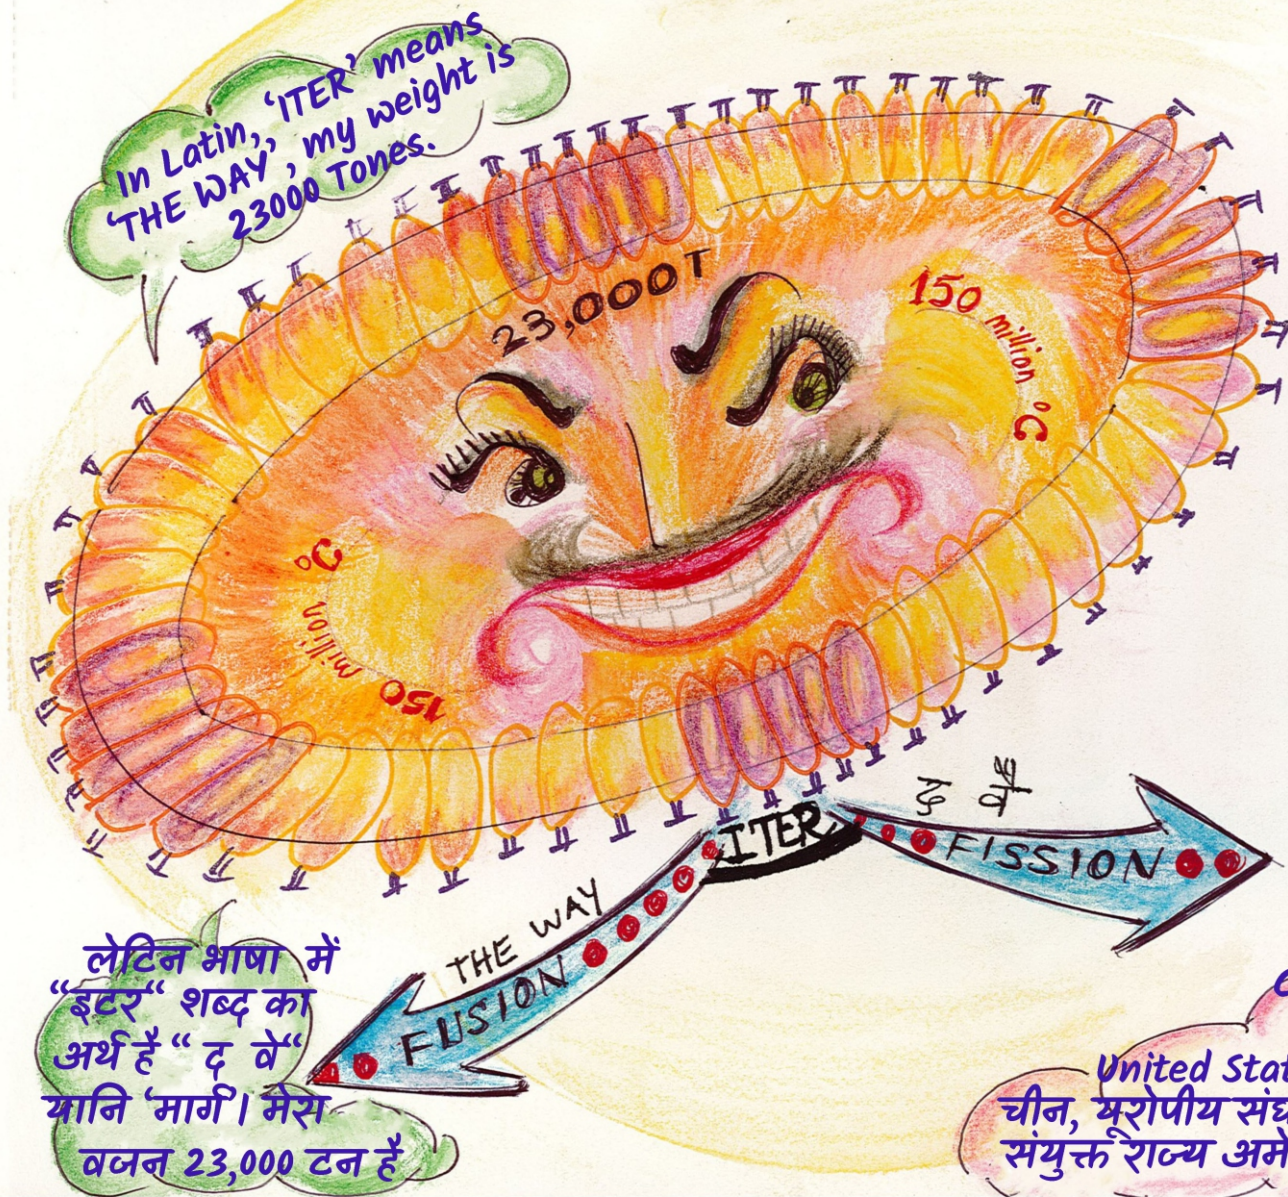 In Latin, 'ITER' means
'THE WAY', my weight is
23000 Tones.
23,000T
150 million °C
150 million °C
ITER
द वे
FISSION
THE WAY
FUSION
लेटिन भाषा में
“इटर“ शब्द का
अर्थ है “ द वे“
यानि ‘मार्ग’। मेरा
वजन 23,000 टन है
United Stat
चीन, यूरोपीय संघ
संयुक्त राज्य अमे